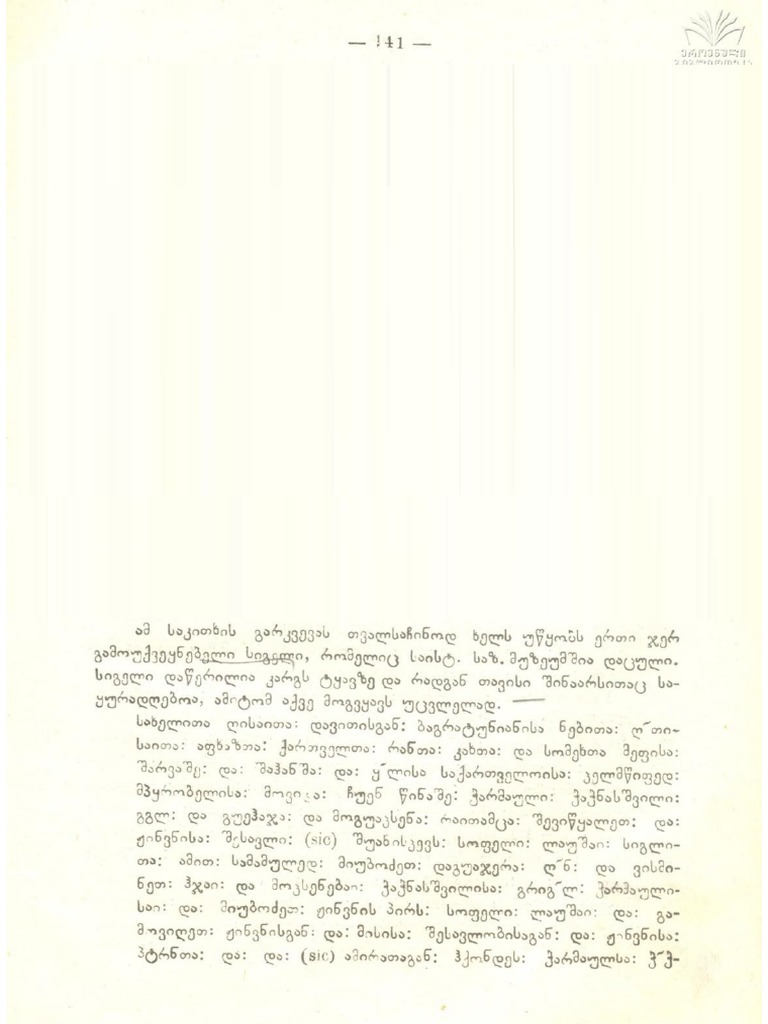 — 141 —
ეროვნული
ბიბლიოთეკა
ამ საკითხის გარკვევას თვალსაჩინოდ ხელს უწყობს ერთი ჯერ
გამოუქვეყნებელი სიგელი, რომელიც საისტ. საზ. მუზეუმშია დაცული.
სიგელი დაწერილია კარგს ტყავზე და რადგან თავისი შინაარსითაც სა-
ყურადღებოა, ამიტომ აქვე მოგვყავს უცვლელად. —
სახელითა ღისაითა: დავითისგან: ბაგრატუნიანისა ნებითა: ღ˜თი-
საითა: აფხაზთა: ქართველთა: რანთა: კახთა: და სომეხთა მეფისა:
შარვაშე: და: შაჰანშა: და: ყ˜ლისა საქართველოისა: ჴელმწიფედ:
მპყრობელისა: მოვიდა: ჩუენ წინაშე: ქარმაული: ჭაჭნასშვილი:
გგლ: და გუეჰაჯა: და მოგუაჴსენა: რაითამცა: შევიწყალეთ: და:
ჟინვნისა: შესავლი: (sic) შუანისკევს: სოფელი: ლაუშაი: სიგლი-
თა: ამით: სამამულედ: მიუბოძეთ: დაგუაჯერა: ღ˜ნ: და ვისმი-
ნეთ: ჰჯაი: და მოჴსენებაი: ჭაჭნასშვილისა: გრიგ˜ლ: ქარმაული-
საი: და: მიუბოძეთ: ჟინვნის პირს: სოფელი: ლაუშაი: და: გა-
მოვიღეთ: ჟინვნისგან: და: მისისა: შესავლობისაგან: და: ჟინვნისა:
პტრნთა: და: და: (sic) ამირათაგან: ჰქონდეს: ქარმაულსა: ჭ˜ჭ-